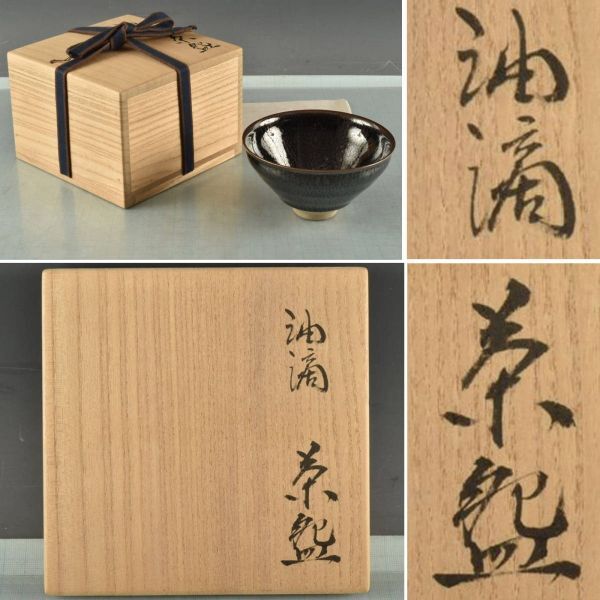 油滴
油滴 茶盌
茶盌